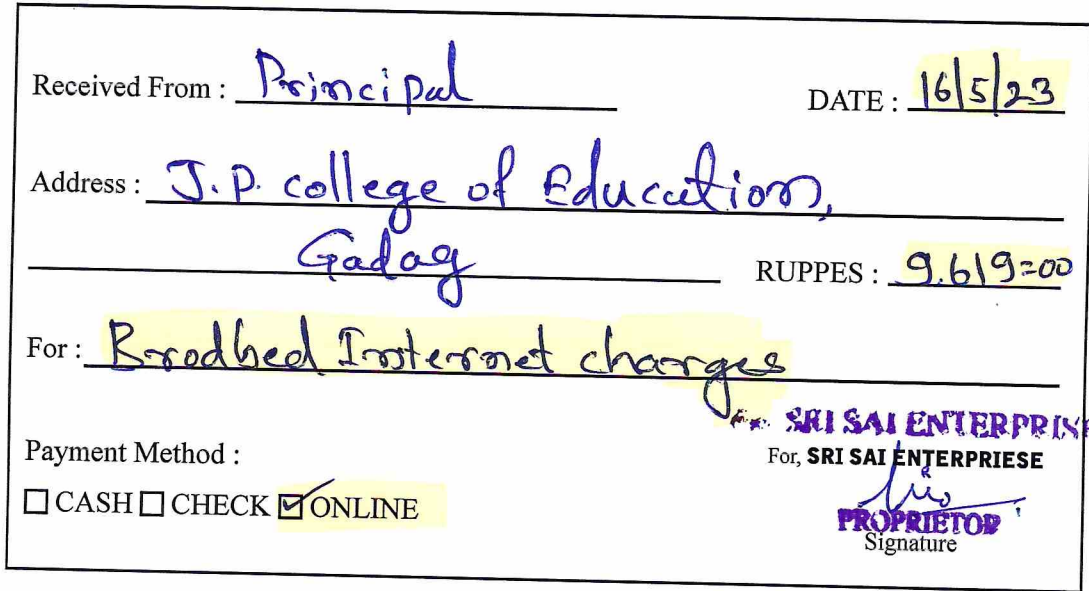 Received From : Principal DATE : 16/5/23
Address : J.P. college of Education,
Gadag RUPPES : 9.619=00
For : Brodbed Internet charges
For SRI SAI ENTERPRIS
Payment Method : For, SRI SAI ENTERPRIESE
CASH CHECK ONLINE
PROPRIETOR
Signature